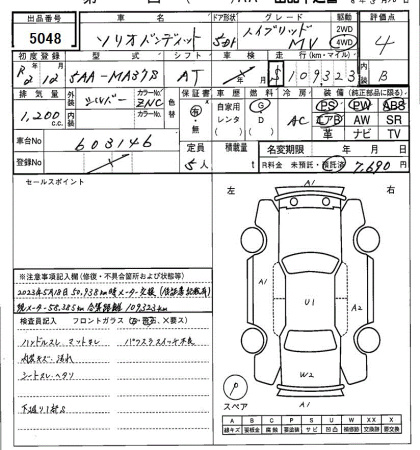 出品番号 車名 ドア形状 グレード 駆動 評価点
5048 ソリオバンディット 5DH ハイブリッドMV 2WD 4WD 4
初度登録 型式 シフト 車検 走行(km・マイル) 内装
R2 12 5AA-MA37S AT 109323 B
排気量 外装色 カラーNo. 色替 保証書 車歴 燃料 冷房 装備(純正部品に限る)
1,200 c.c. シルバー ZNC 有・無 自家用 レンタ G D AC PS PW ABS
エアB AW SR
革 ナビ TV
車台No 603146 定員 積載量 名変期限 年 月 日
登録No 5人 R料金 未預託・預託済 7,690円
セールスポイント
左 右
A1
A1 U1 A2
W2
A1
※注意事項記入欄(修復・不具合箇所および状態等)
2023年5月18日 50,938km時メーター交換(保証書記載有)
現メーター58,385km 合算距離109323km
検査員記入 フロントガラス
ハンドルスレ マットスレ パワスラスイッチ不良
内装キズ・汚れ
シートスレ・ヘタリ
下廻りサビS
P
スペア
A B C P S U W X XX ×
線キズ 要板金 腐蝕 要塗装 サビ 凹凸 補修跡 要交換